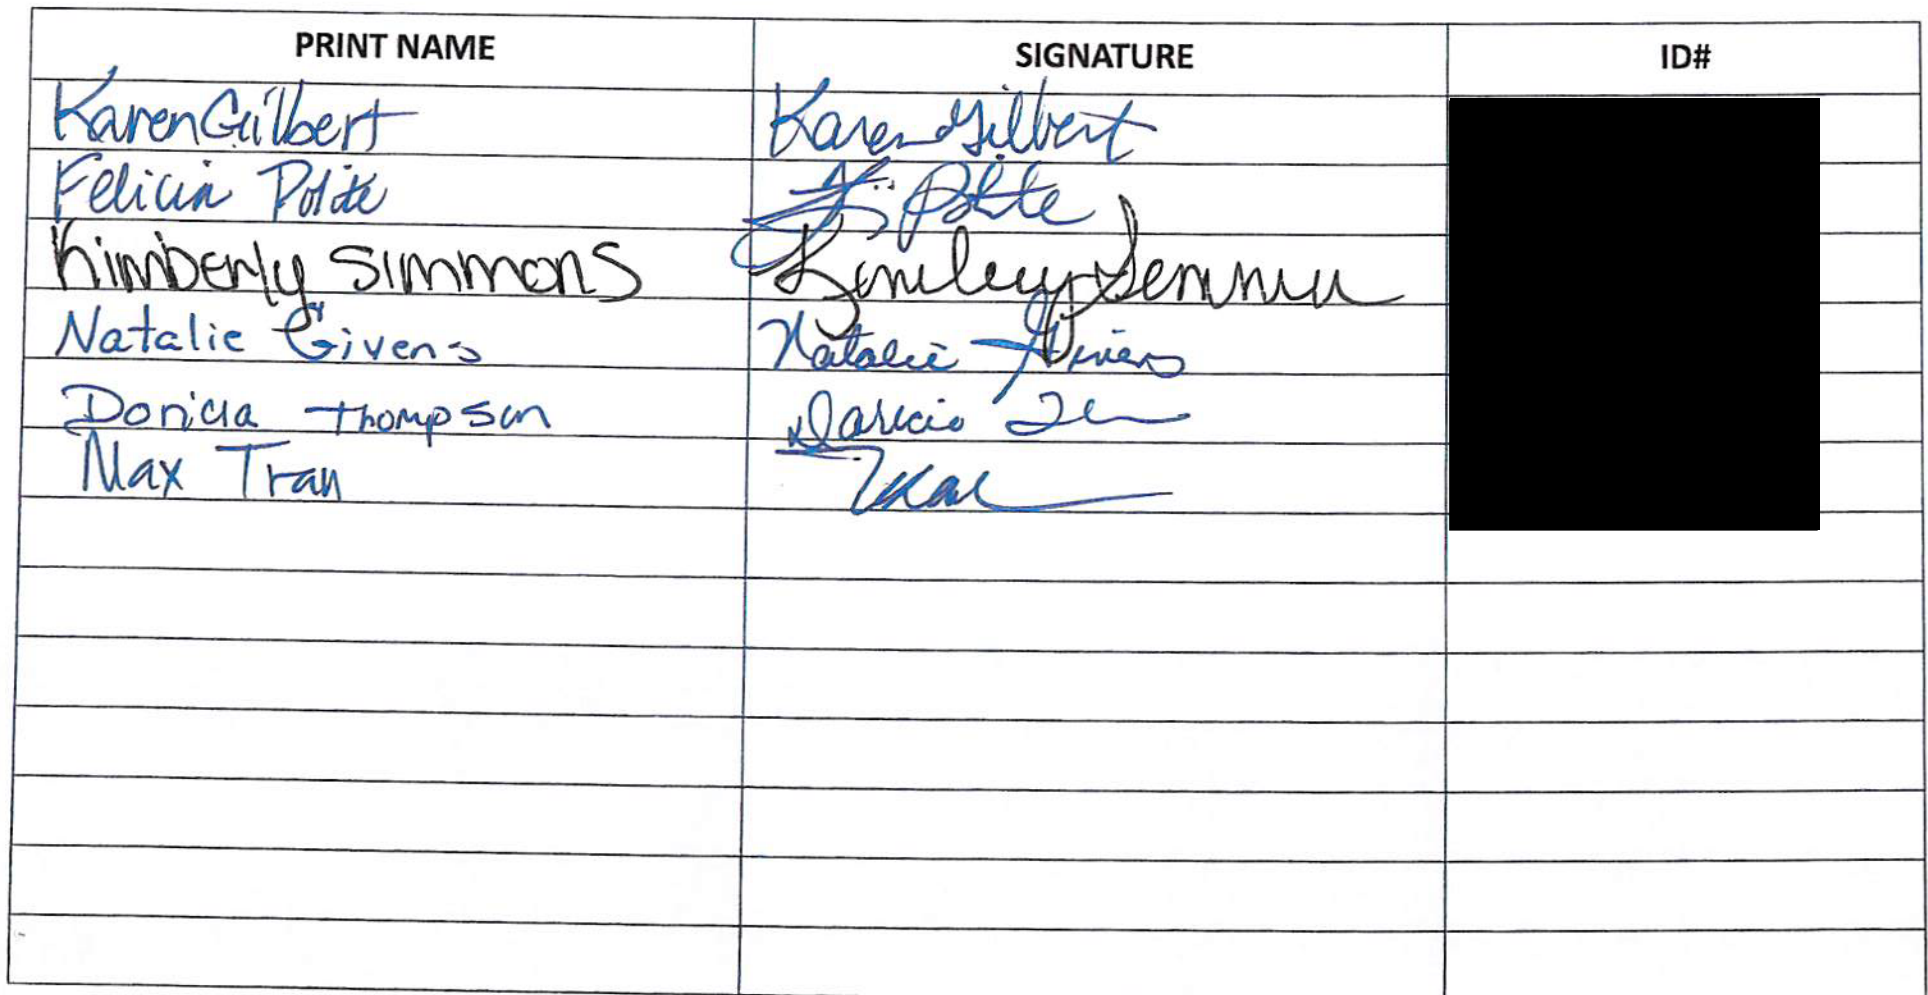 PRINT NAME SIGNATURE ID#
Karen Gilbert Karen Gilbert
Felicia Polite F. Polite
Kimberly Simmons Kimberly Simmons
Natalie Givens Natalie Givens
Doricia Thompson Doricia
Max Tran Tran